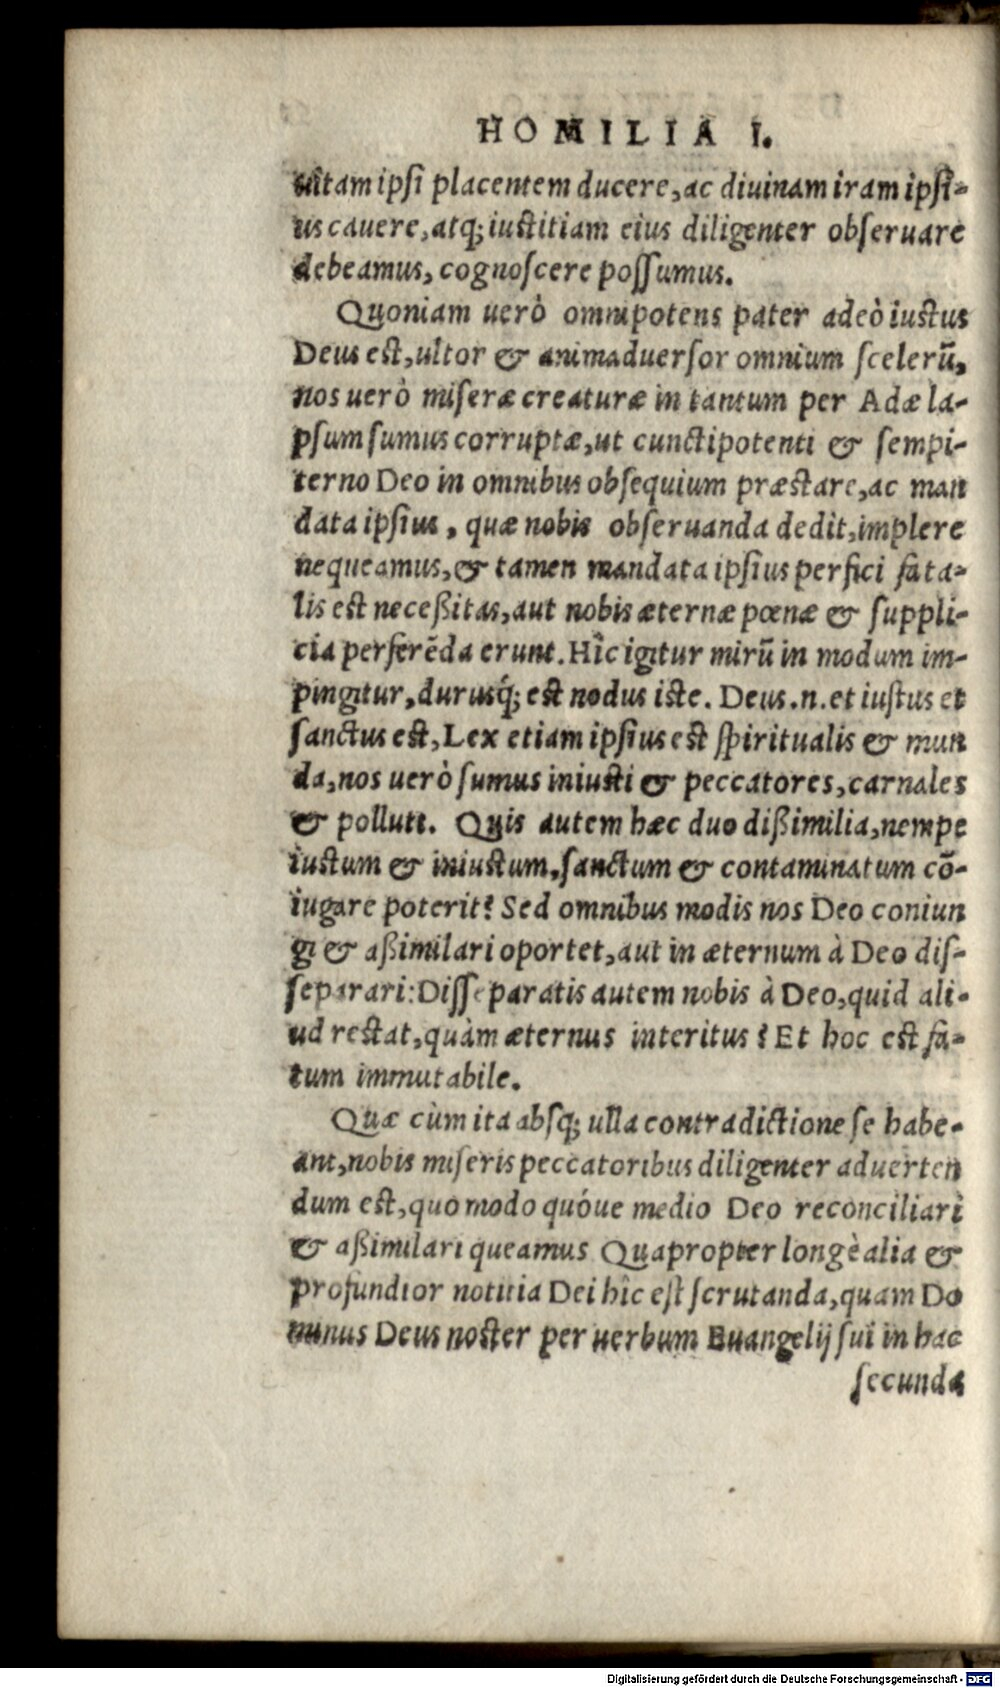 HOMILIA I.
uitam ipsi placentem ducere, ac diuinam iram ipsi-
us cauere, atq; iustitiam eius diligenter obseruare
debeamus, cognoscere possumus.
Quoniam uerò omnipotens pater adeò iustus
Deus est, ultor & animaduersor omnium scelerū,
nos uerò miseræ creaturæ in tantum per Adæ la-
psum sumus corruptæ, ut cunctipotenti & sempi-
terno Deo in omnibus obsequium præstare, ac man
data ipsius, quæ nobis obseruanda dedit, implere
nequeamus, & tamen mandata ipsius perfici fata-
lis est neceßitas, aut nobis æternæ pœnæ & suppli-
cia perferēda erunt. Hîc igitur mirū in modum im-
pingitur, durusq́; est nodus iste. Deus .n. et iustus et
sanctus est, Lex etiam ipsius est spiritualis & mun
da, nos uerò sumus iniusti & peccatores, carnales
& polluti. Quis autem hæc duo dißimilia, nempe
iustum & iniustum, sanctum & contaminatum cō-
iugare poterit? Sed omnibus modis nos Deo coniun
gi & aßimilari oportet, aut in æternum à Deo dis-
separari: Disseparatis autem nobis à Deo, quid ali-
ud restat, quàm æternus interitus? Et hoc est fa-
tum immutabile.
Quæ cùm ita absq; ulla contradictione se habe-
ant, nobis miseris peccatoribus diligenter aduerten
dum est, quo modo quóue medio Deo reconciliari
& aßimilari queamus Quapropter longè alia &
profundior notitia Dei hîc est scrutanda, quam Do
minus Deus noster per uerbum Euangelij sui in hac
secunda
Digitalisierung gefördert durch die Deutsche Forschungsgemeinschaft - DFG